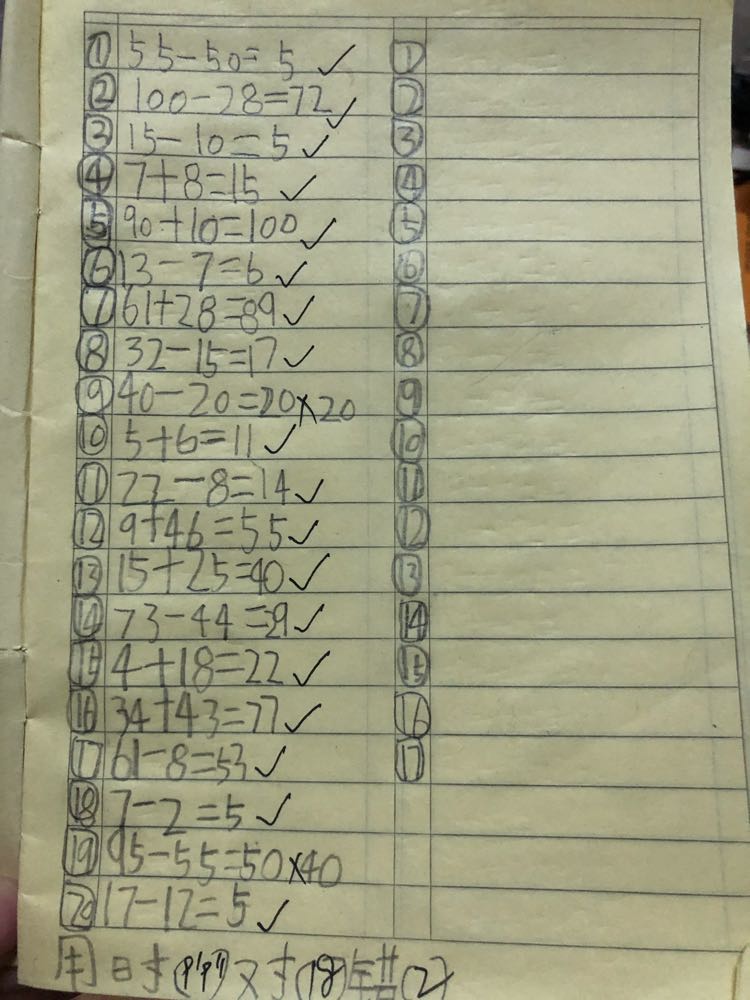 ① 55-50=5 ✓
② 100-28=72 ✓
③ 15-10=5 ✓
④ 7+8=15 ✓
⑤ 90+10=100 ✓
⑥ 13-7=6 ✓
⑦ 61+28=89 ✓
⑧ 32-15=17 ✓
⑨ 40-20=20 × 20
⑩ 5+6=11 ✓
⑪ 22-8=14 ✓
⑫ 9+46=55 ✓
⑬ 15+25=40 ✓
⑭ 73-44=29 ✓
⑮ 4+18=22 ✓
⑯ 34+43=77 ✓
⑰ 61-8=53 ✓
⑱ 7-2=5 ✓
⑲ 95-55=50 × 40
⑳ 17-12=5 ✓
①
②
③
④
⑤
⑥
⑦
⑧
⑨
⑩
⑪
⑫
⑬
⑭
⑮
⑯
⑰
用时 对(18)错(2)